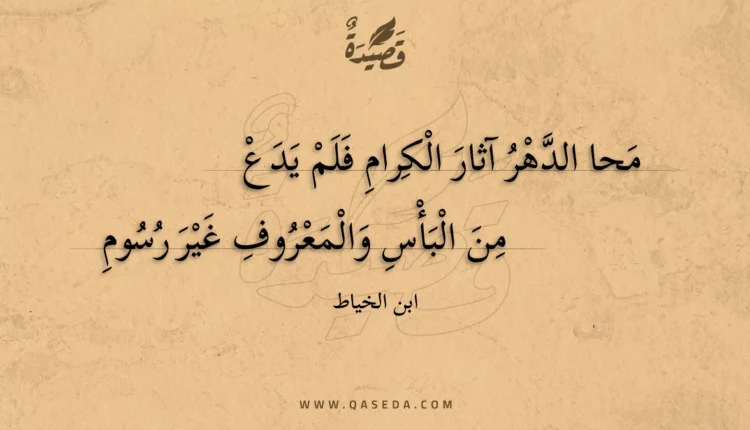 قَصِيدَةٌ
مَحا الدَّهْرُ آثارَ الْكِرامِ فَلَمْ يَدَعْ
مِنَ الْبَأْسِ وَالْمَعْرُوفِ غَيْرَ رُسُومِ
ابن الخياط
WWW.QASEDA.COM